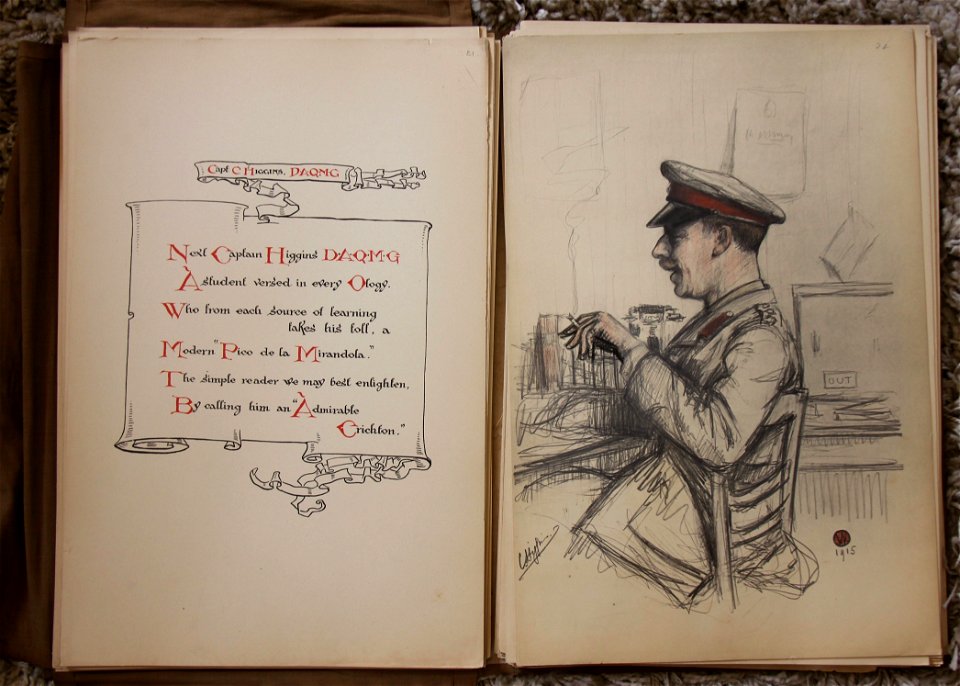 21.
Capt C Higgins. D.A.Q.M.G
Next Captain Higgins D.A.Q.M.G
A student versed in every Ology.
Who from each source of learning
takes his toll, a
Modern "Pico de la Mirandola."
The simple reader we may best enlighten,
By calling him an "Admirable
Crichton."
OUT
1915